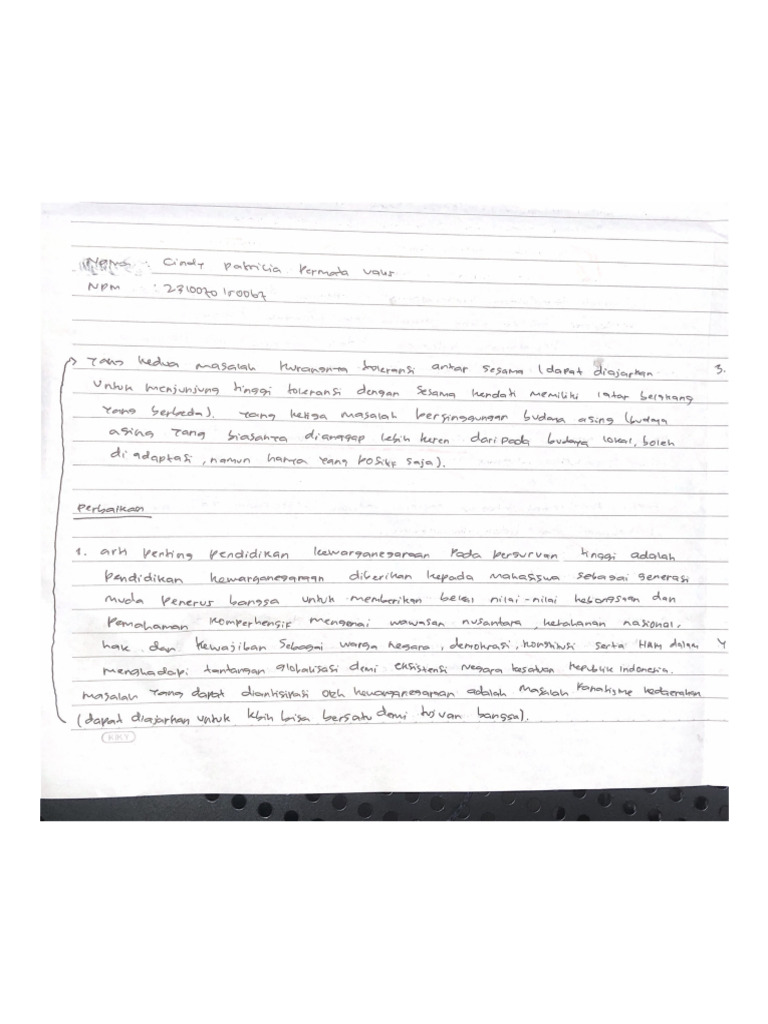 Nama : Cindy Patricia Permata
NPM : 2310070150067
→ Yang kedua masalah kurangnya toleransi antar sesama (dapat diajarkan 3.
untuk menjunjung tinggi toleransi dengan sesama kendati memiliki latar belakang
yang berbeda). Yang ketiga masalah bersinggungan budaya asing (budaya
asing yang biasanya dianggap lebih keren daripada budaya lokal, boleh
di adaptasi, namun hanya yang positif saja).
Perbaikan
1. arti penting pendidikan kewarganegaraan pada perguruan tinggi adalah
pendidikan kewarganegaraan diberikan kepada mahasiswa sebagai generasi
muda penerus bangsa untuk memberikan bekal nilai-nilai kebangsaan dan
pemahaman komperhensif mengenai wawasan nusantara, ketahanan nasional,
hak dan kewajiban sebagai warga negara, demokrasi, konstitusi serta HAM dalam
menghadapi tantangan globalisasi demi eksistensi negara kesatuan Republik Indonesia.
masalah yang dapat diantisipasi oleh kewarganegaraan adalah masalah fanatisme kedaerahan
(dapat diajarkan untuk lebih bisa bersatu demi tujuan bangsa).
KIKY